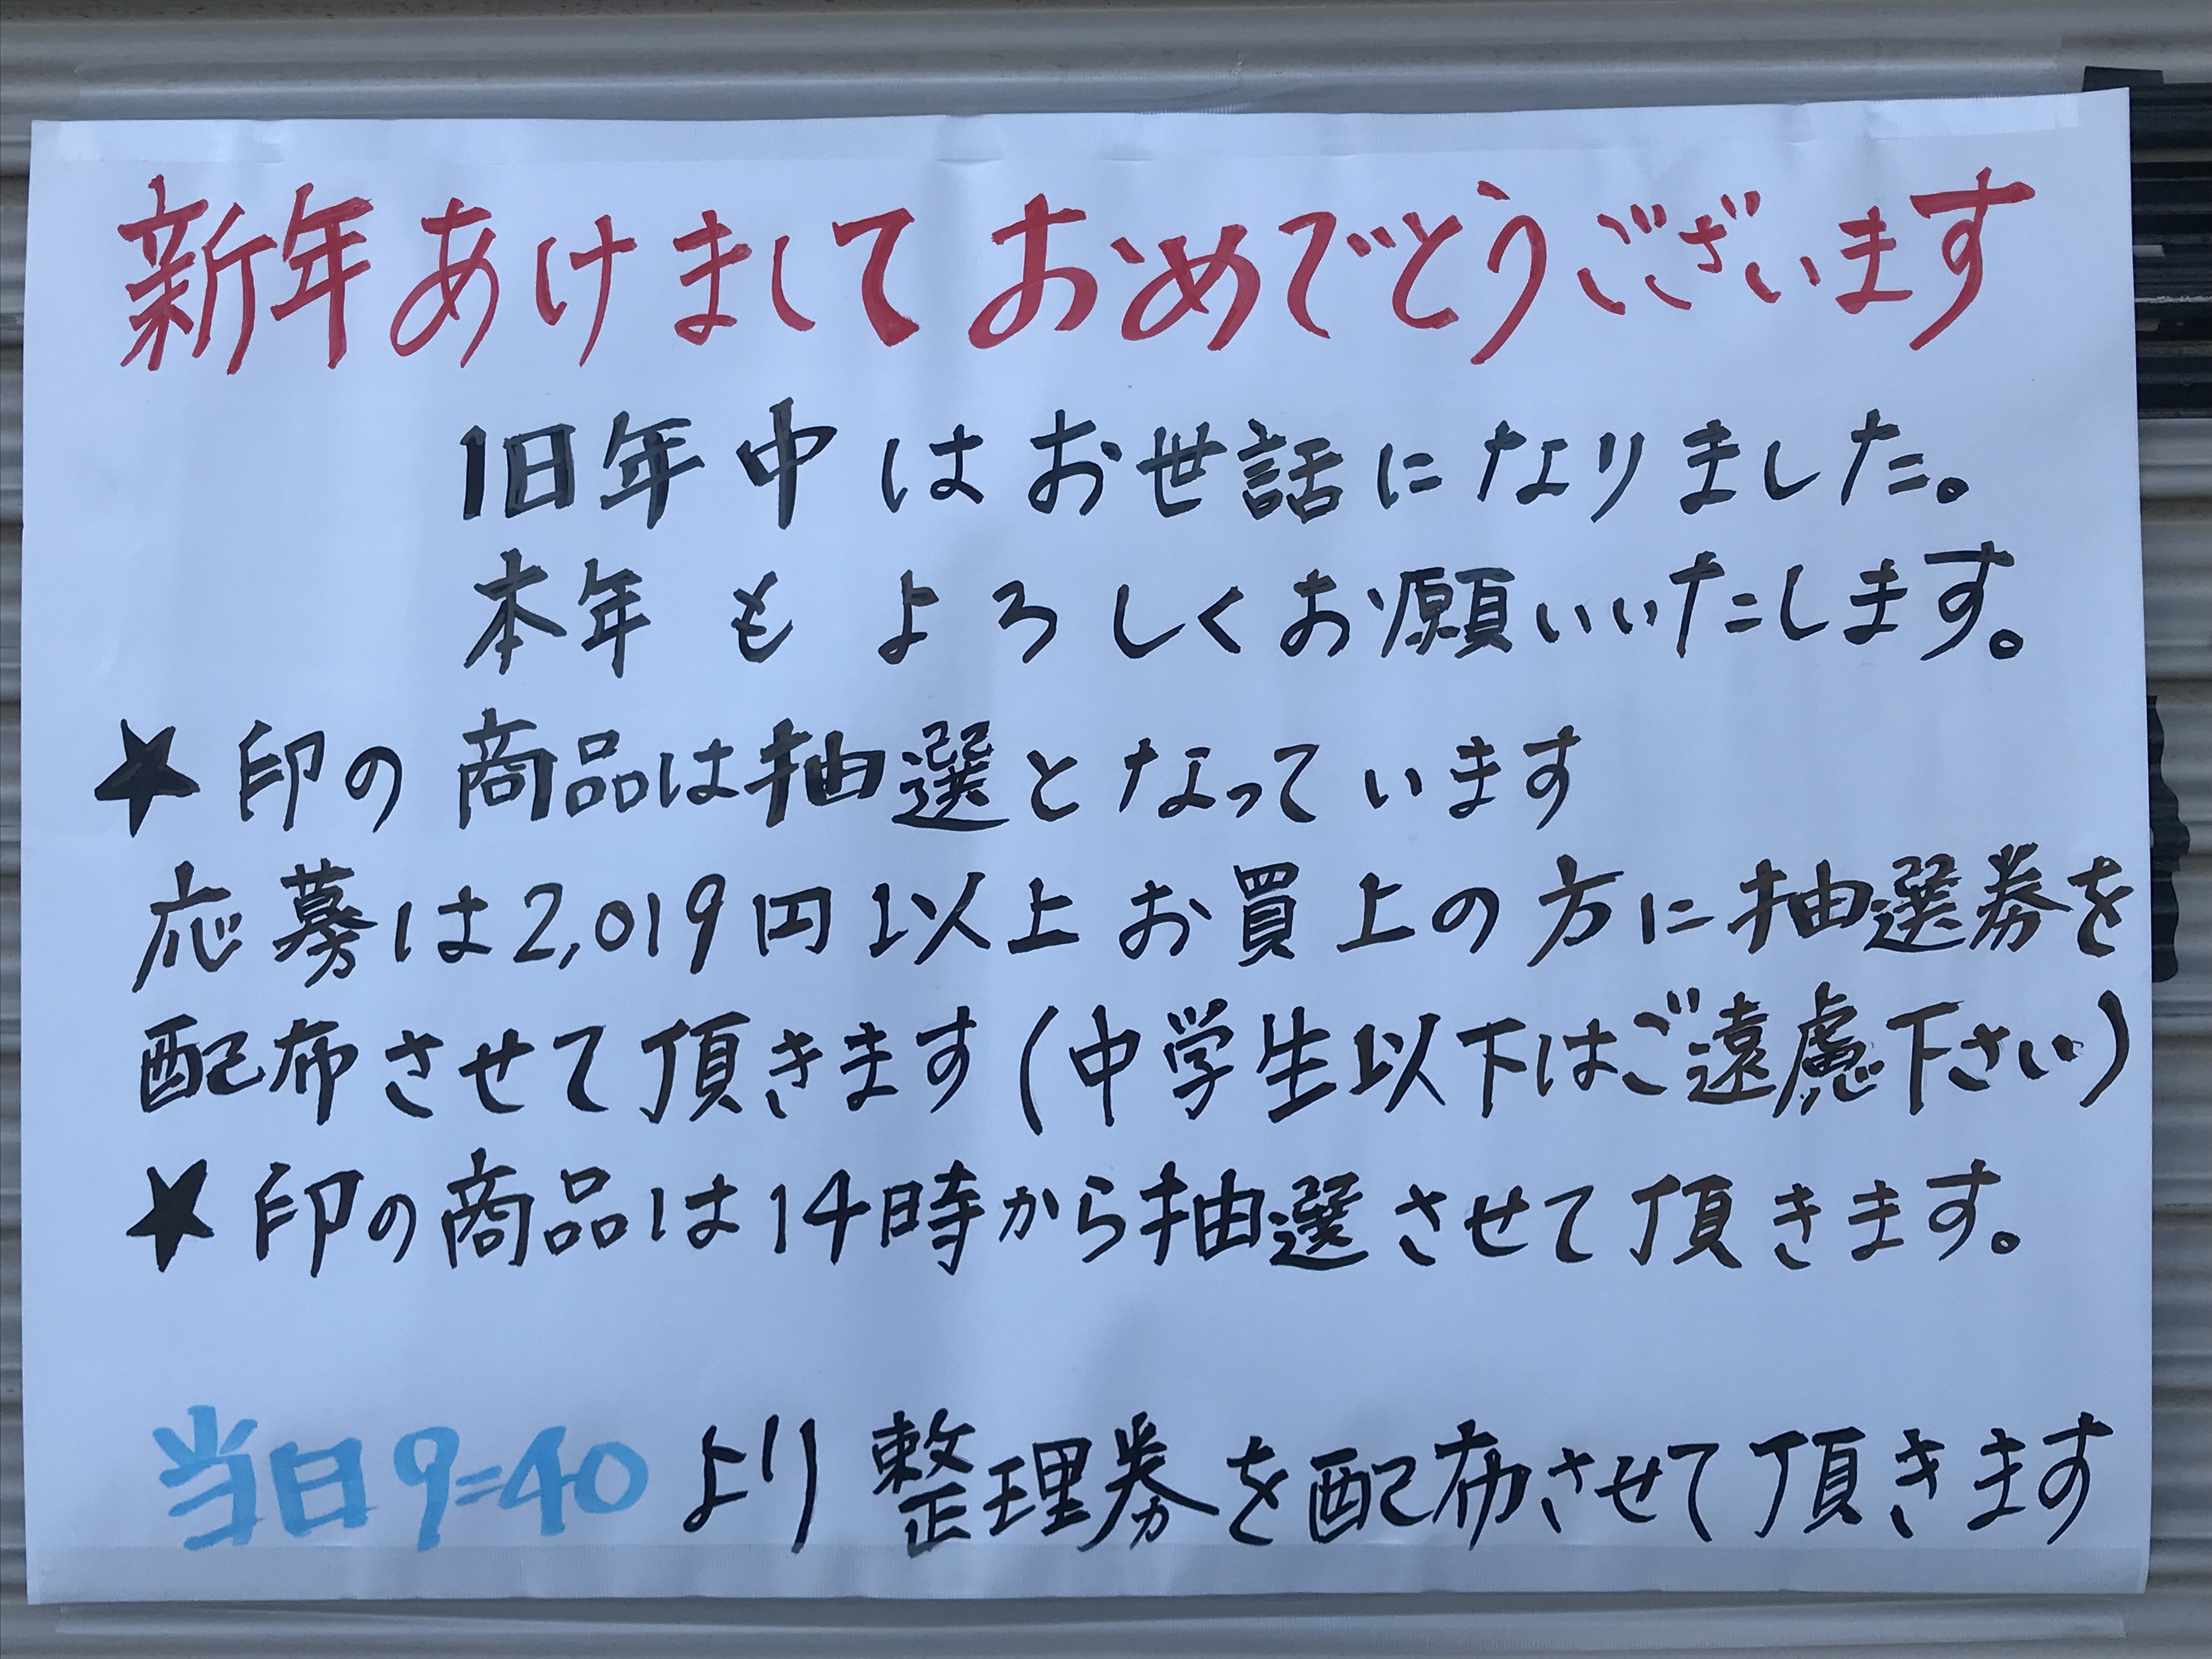 新年あけましておめでとうございます
旧年中はお世話になりました。
本年もよろしくお願いいたします。
★印の商品は抽選となっています
応募は2,019円以上お買上の方に抽選券を
配布させて頂きます(中学生以下はご遠慮下さい)
★印の商品は14時から抽選させて頂きます。
当日9=40より整理券を配布させて頂きます